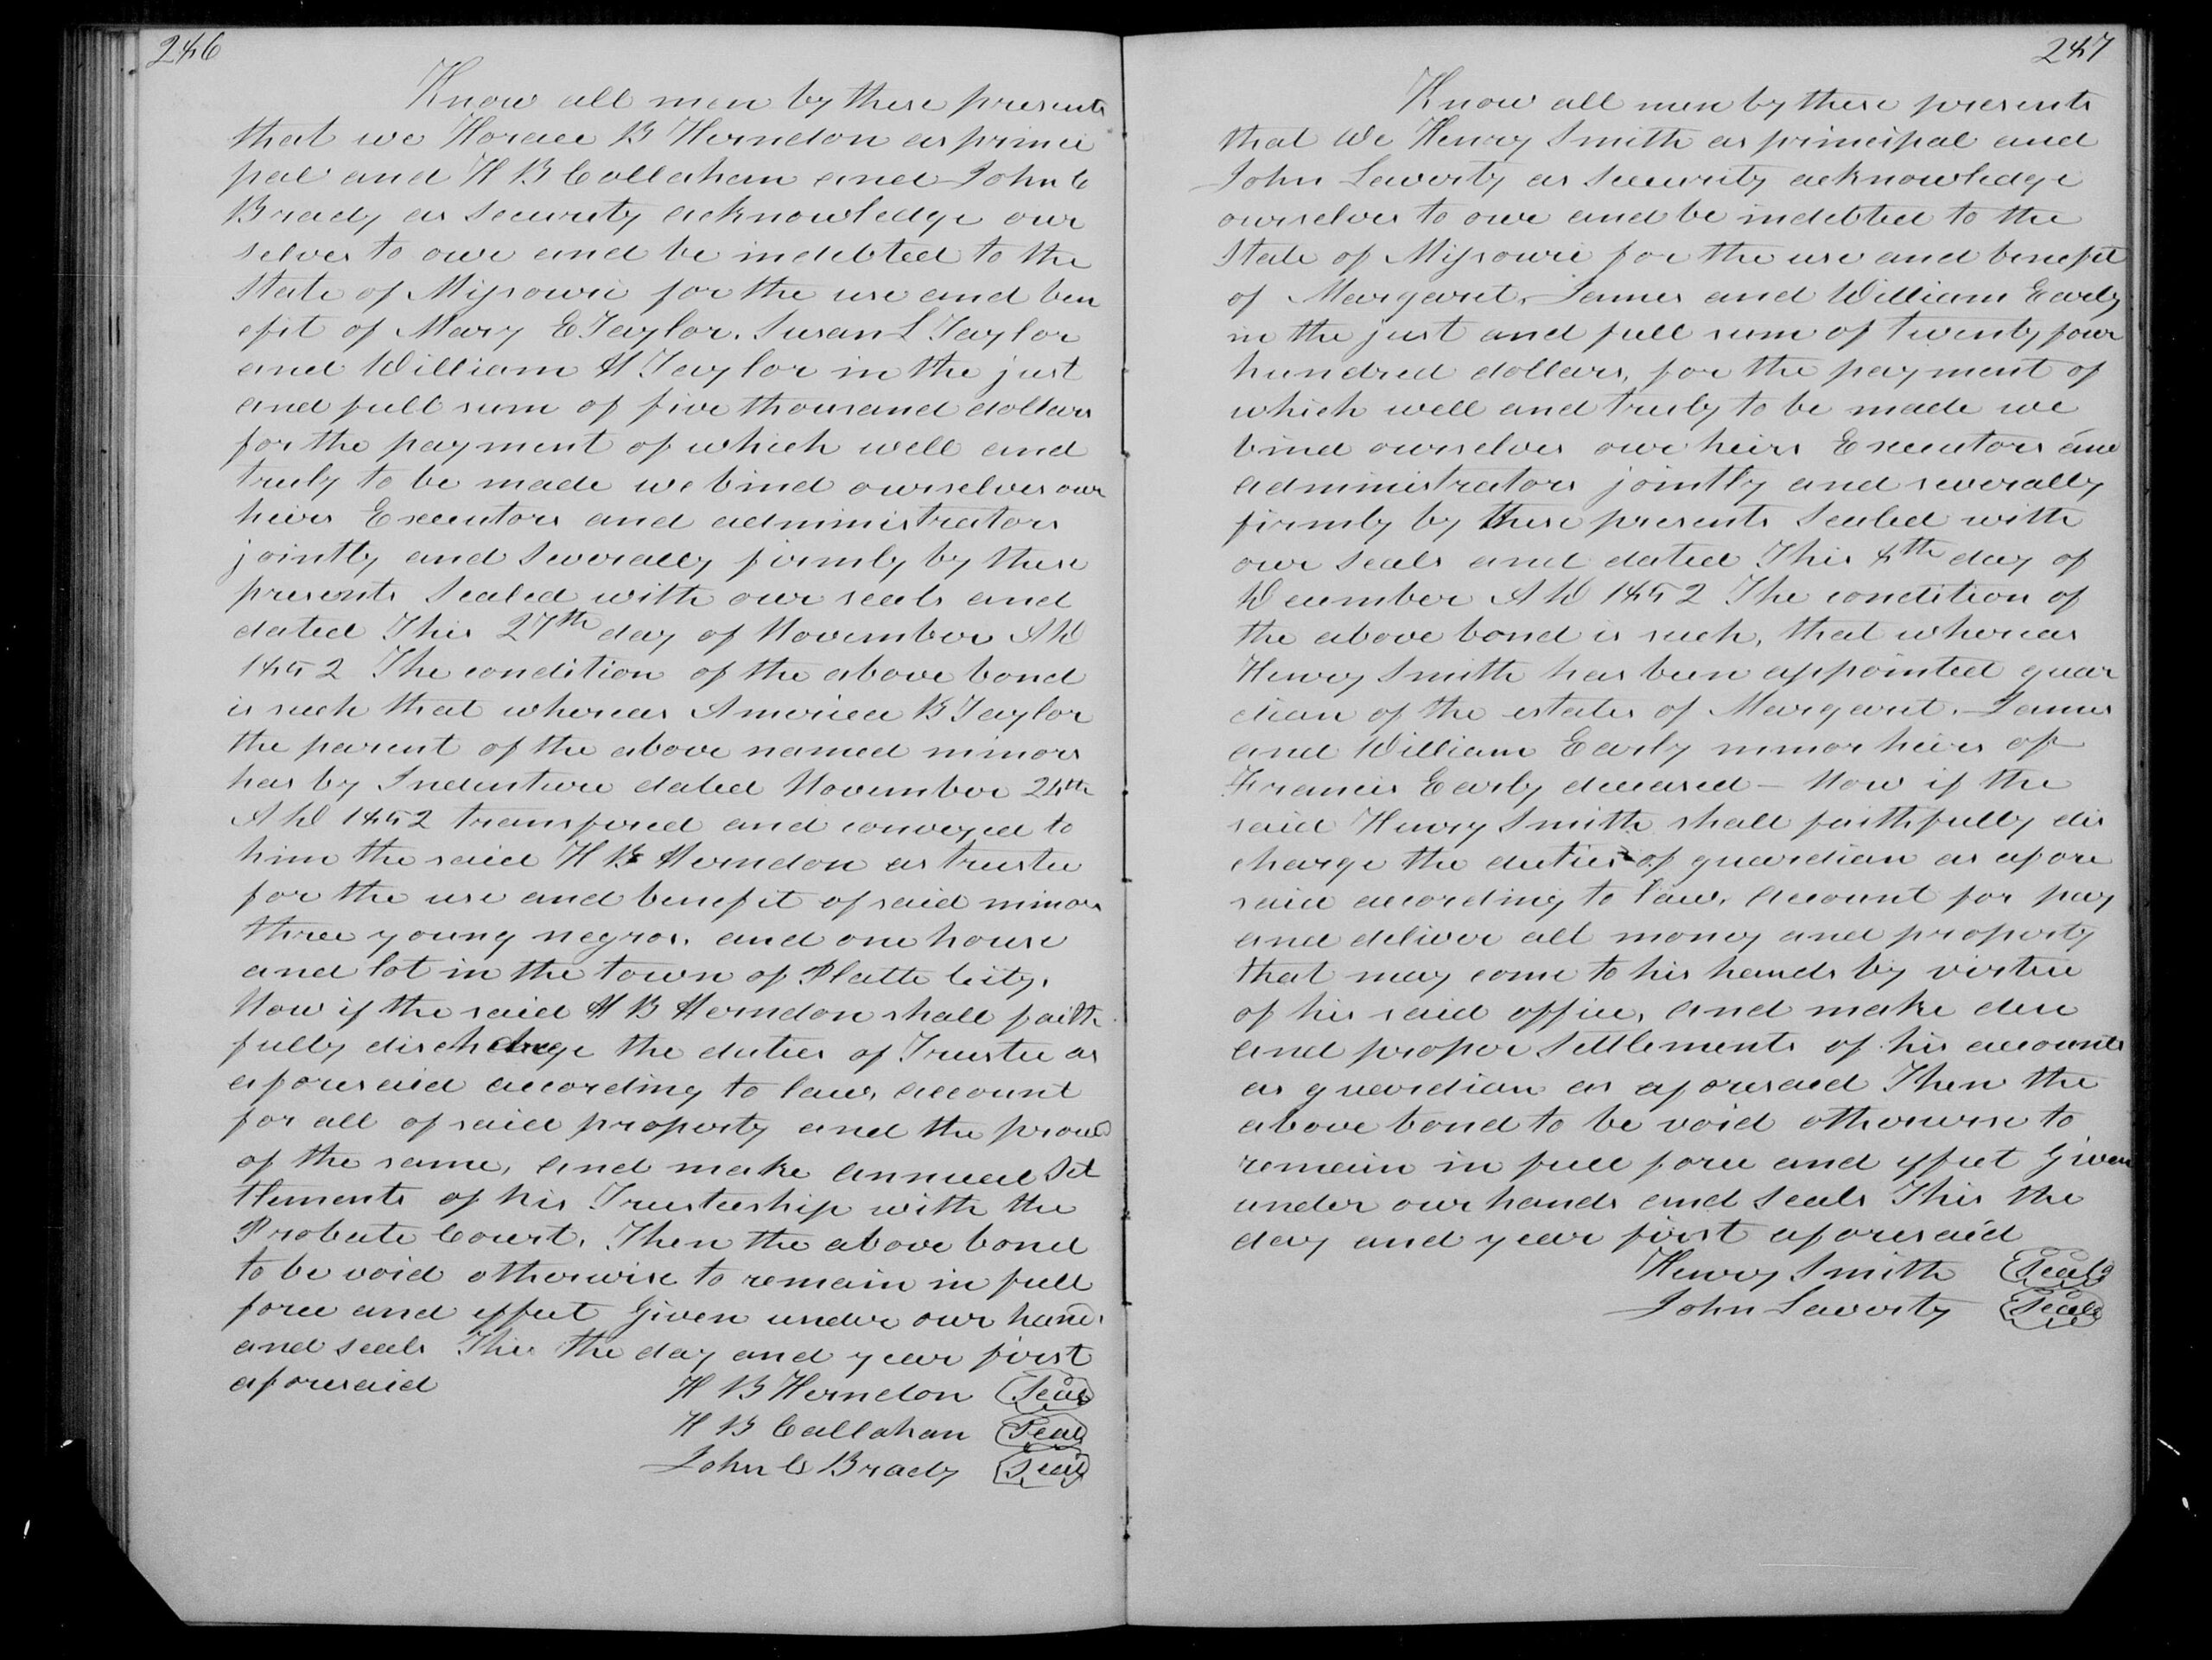 246
Know all men by these presents
that we Horace B Herndon as princi
pal and H B Callahan and John C
Brady as security acknowledge our
selves to owe and be indebted to the
State of Missouri for the use and ben
efit of Mary E Taylor, Susan L Taylor
and William H Taylor in the just
and full sum of five thousand dollars
for the payment of which well and
truly to be made we bind ourselves our
heirs Executors and administrators
jointly and severally firmly by these
presents Sealed with our seals and
dated This 27th day of November AD
1852 The condition of the above bond
is such that whereas America B Taylor
the parent of the above named minors
has by Indenture dated November 24th
AD 1852 transfered and conveyed to
him the said H B Herndon as trustee
for the use and benefit of said minors
three young negros, and one house
and lot in the town of Platte City.
Now if the said H B Herndon shall faith
fully discharge the duties of Trustee as
aforesaid according to law, account
for all of said property and the proceeds
of the same, and make annual Set
tlements of his Trusteeship with the
Probate Court, Then the above bond
to be void otherwise to remain in full
force and effect Given under our hands
and seals This the day and year first
aforesaid
H B Herndon Seal
H B Callahan Seal
John C Brady Seal
247
Know all men by these presents
that We Henry Smith as principal and
John Laverty as Security acknowledge
ourselves to owe and be indebted to the
State of Missouri for the use and benefit
of Margaret, James and William Early
in the just and full sum of twenty four
hundred dollars, for the payment of
which well and truly to be made we
bind ourselves our heirs Executors and
administrators jointly and severally
firmly by these presents Sealed with
our seals and dated This 4th day of
December AD 1852 The condition of
the above bond is such, that whereas
Henry Smith has been appointed guar
dian of the estates of Margaret, James
and William Early minor heirs of
Francis Early deceased - Now if the
said Henry Smith shall faithfully dis
charge the duties of guardian as afore
said according to law, account for pay
and deliver all money and property
that may come to his hands by virtue
of his said office, and make due
and proper Settlements of his accounts
as guardian as aforesaid Then the
above bond to be void otherwise to
remain in full force and effect Given
under our hands and seals This the
day and year first aforesaid
Henry Smith Seal
John Laverty Seal